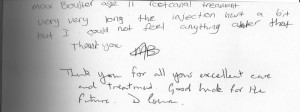 max Boulter age 11 rootcanal treatment
very very long the injection hurt a bit
but I could not feel anything after that
thank you
Thank you for all your excellent care
and treatment. Good luck for the
future. D